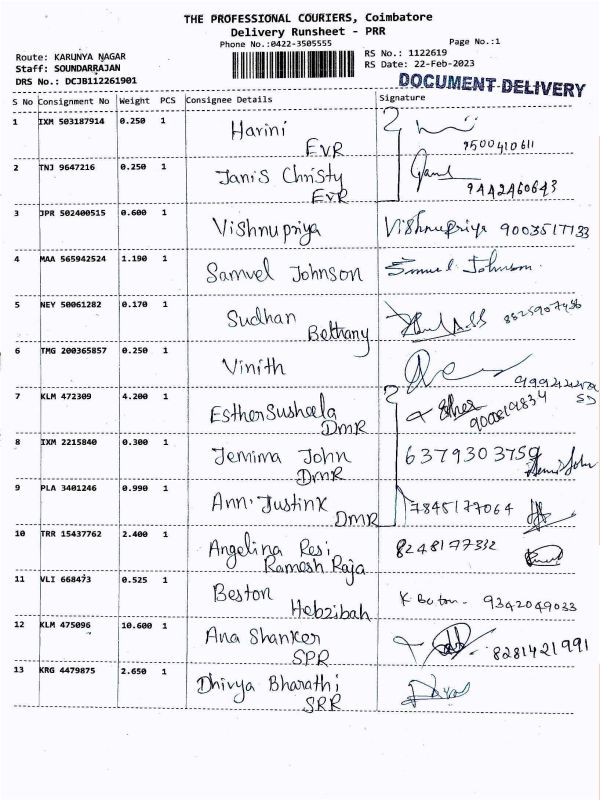 THE PROFESSIONAL COURIERS, Coimbatore
Delivery Runsheet - PRR
Phone No.:0422-3505555 Page No.:1
Route: KARUNYA NAGAR RS No.: 1122619
Staff: SOUNDARRAJAN RS Date: 22-Feb-2023
DRS No.: DCJB112261901
DOCUMENT DELIVERY
S No Consignment No Weight PCS Consignee Details Signature
1 IXM 503187914 0.250 1 Harini
EVR 9500410611
2 TNJ 9647216 0.250 1 Janis Christy
EVR 9442460643
3 JPR 502400515 0.600 1 Vishnupriya Vishnupriya 9003517133
4 MAA 565942524 1.190 1 Samuel Johnson Samuel Johnson.
5 NEY 50061282 0.170 1 Sudhan
Bethany
6 TMG 200365857 0.250 1 Vinith
7 KLM 472309 4.200 1 Esther Susheela Esther
DMR
8 IXM 2215840 0.300 1 Jemima John 6379303759
DMR
9 PLA 3401246 0.990 1 Ann Justinx 7845177064
DMR
10 TRR 15437762 2.400 1 Angelina Resi 8248177332
Ramesh Raja
11 VLI 668473 0.525 1 Beston
Hebzibah 9342049033
12 KLM 475096 10.600 1 Ana Shanker
SPR 8281421991
13 KRG 4479875 2.650 1 Dhivya Bharathi
SRR